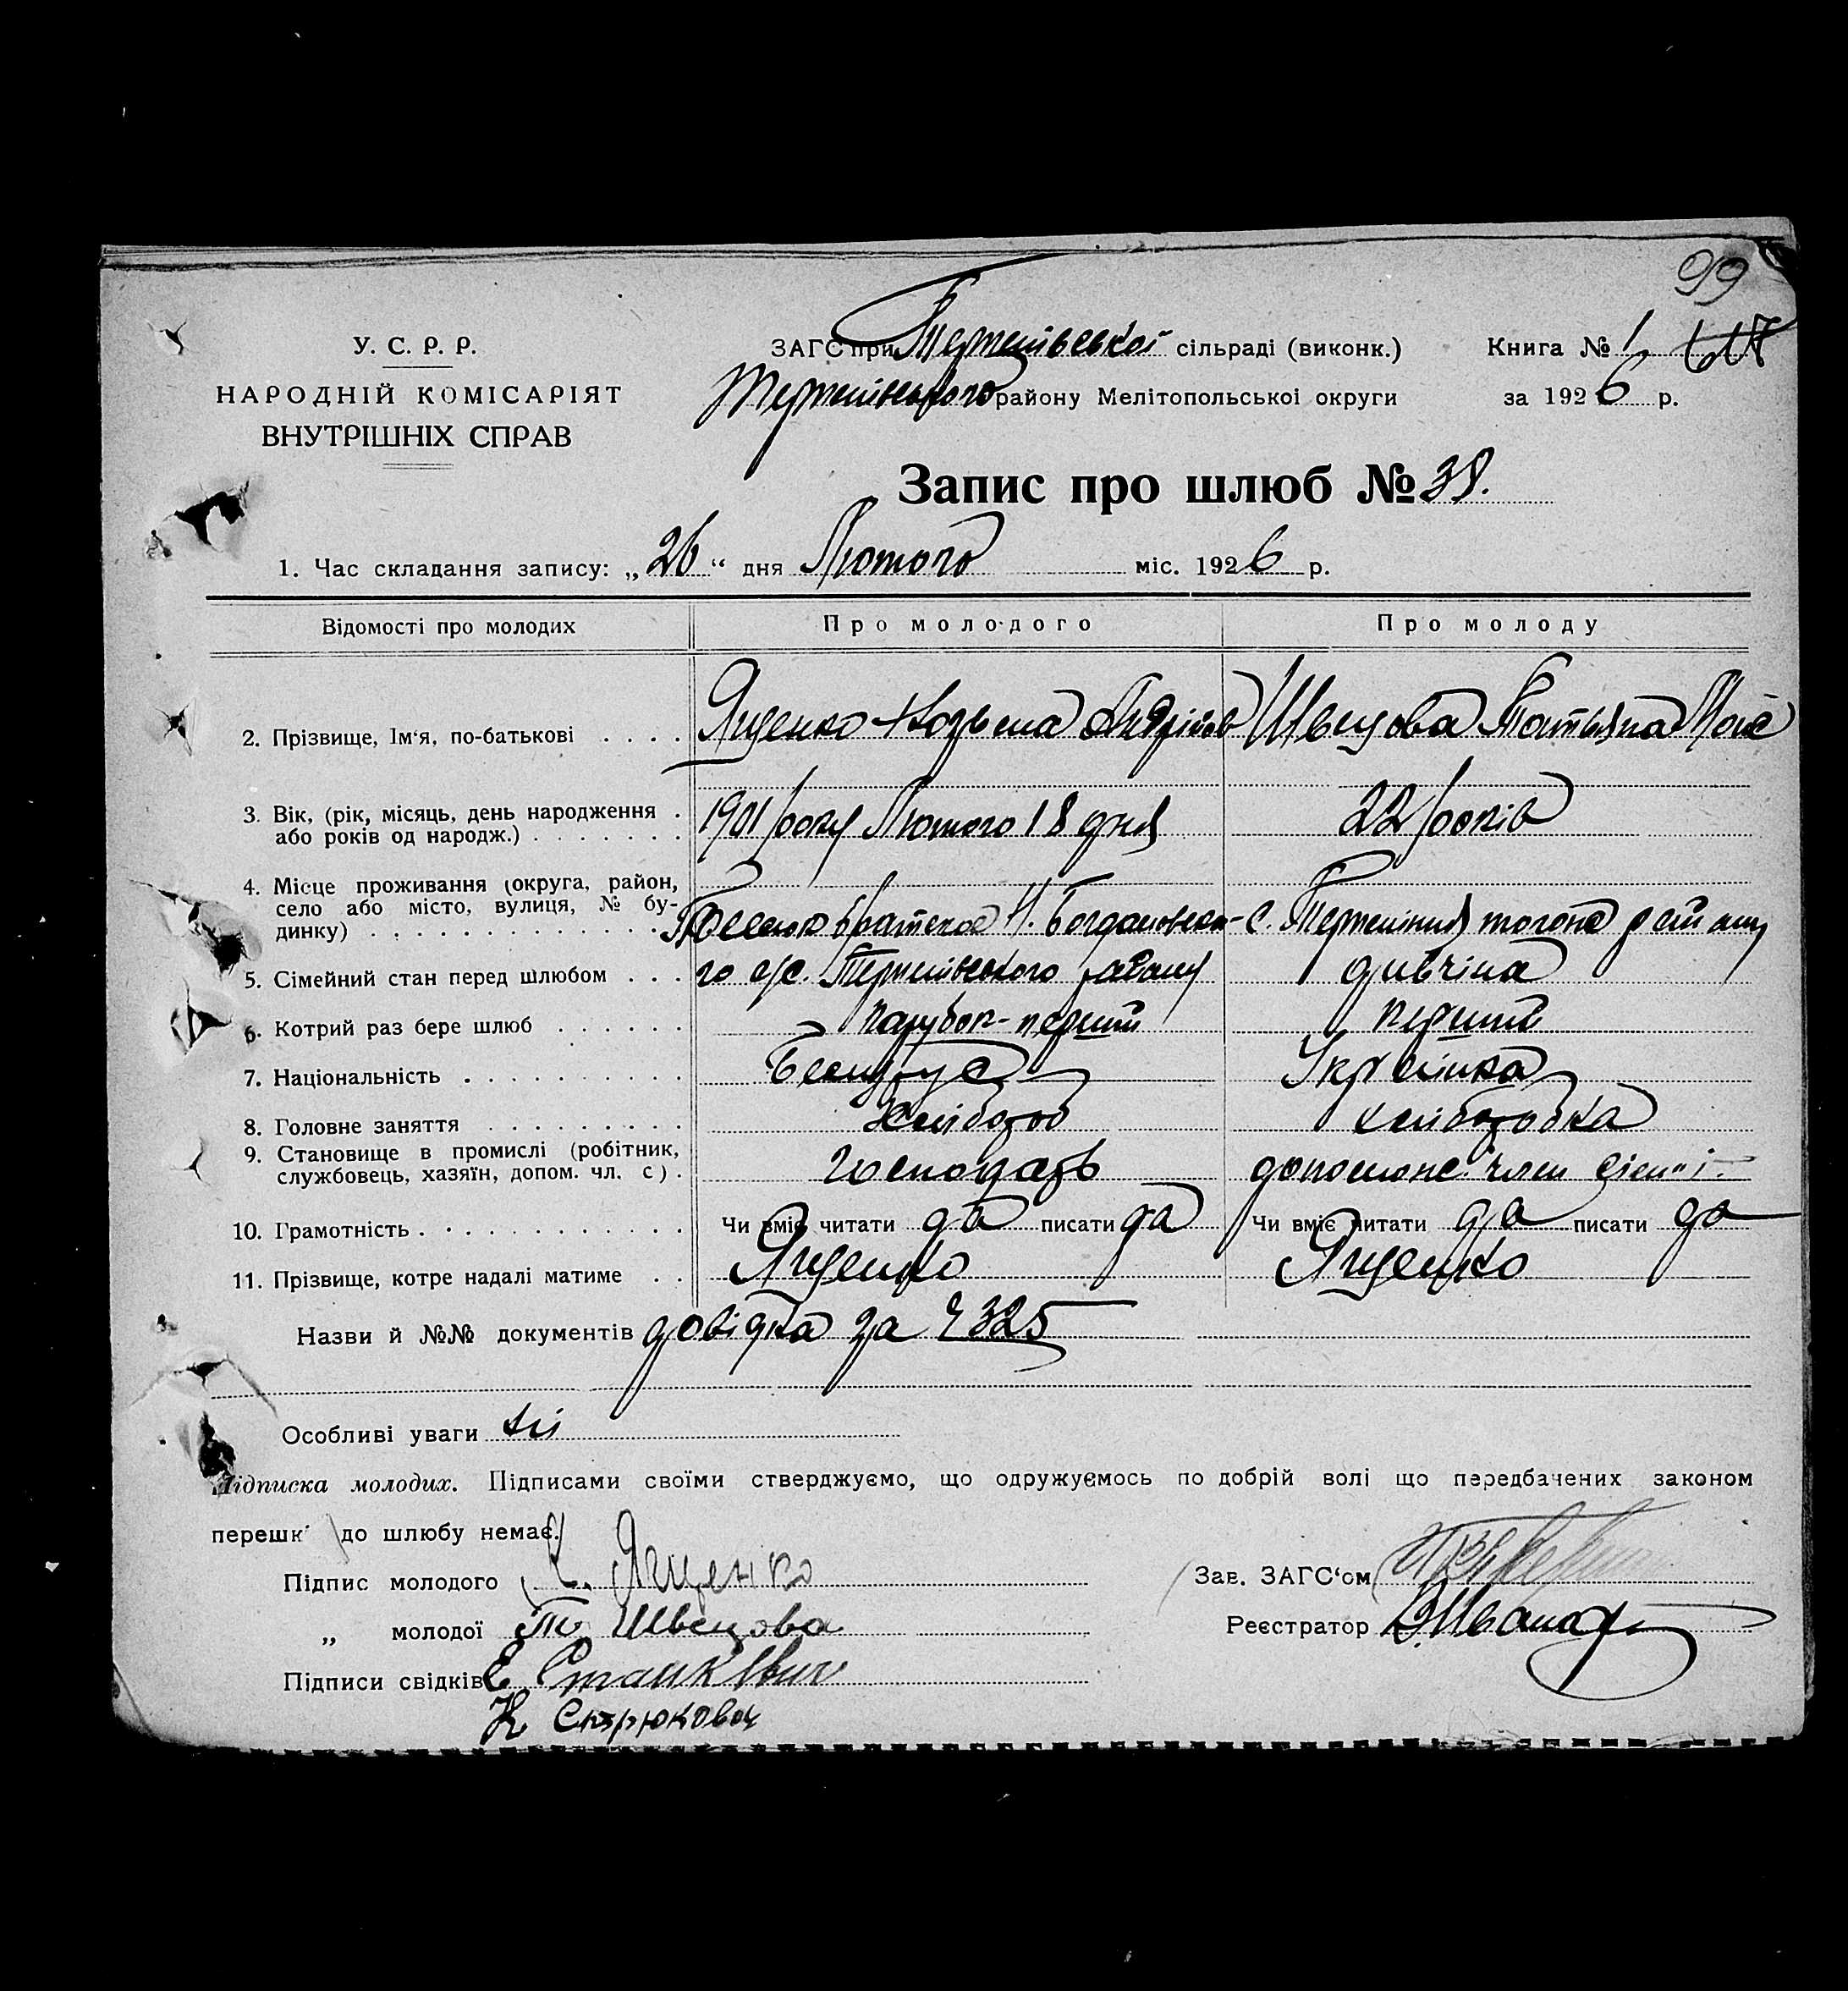 99
У. С. Р. Р.
НАРОДНІЙ КОМІСАРІЯТ
ВНУТРІШНІХ СПРАВ
ЗАГС при Терпенівської сільраді (виконк.)
Терпенівського району Мелітопольскоі округи
Книга № 1
за 1926 р.
Запис про шлюб № 38.
1. Час складання запису: „26“ дня Лютого міс. 1926 р.
Відомості про молодих Про молодого Про молоду
2. Прізвище, Ім‘я, по-батькові . . . . Ященко Козьма Андріїов Швецова Татьяна
3. Вік, (рік, місяць, день народження .
або років од народж.) . . . . . . . 1901 року Лютого 18 дня 22 років
4. Місце проживання (округа, район,
село або місто, вулиця, № бу-
динку) . . . . . . . . . . . . Братское Н. Богдановско- с. Терпіння того ж району
5. Сімейний стан перед шлюбом . . . го с/с. Терпенівського району дивчіна
6. Котрий раз бере шлюб . . . . . . парубок - перший перший
7. Національність . . . . . . . . . . Білорус Українка
8. Головне заняття . . . . . . . . . Хлібороб хліборобка
9. Становище в промислі (робітник,
службовець, хазяїн, допом. чл. с) . господарь допомож. член сім'ї.
10. Грамотність . . . . . . . . . . . Чи вміє читати да писати да Чи вміє читати да писати да
11. Прізвище, котре надалі матиме . . Ященко Ященко
Назви й №№ документів довідка за Ч 325
Особливі уваги ні
Підписка молодих. Підписами своїми стверджуємо, що одружуємось по добрій волі що передбачених законом
перешк до шлюбу немає.
Підпис молодого К. Ященко Зав. ЗАГС‘ом
„ молодої Т. Швецова Реєстратор
Підписи свідків Е Станкевич
К Стрюковой